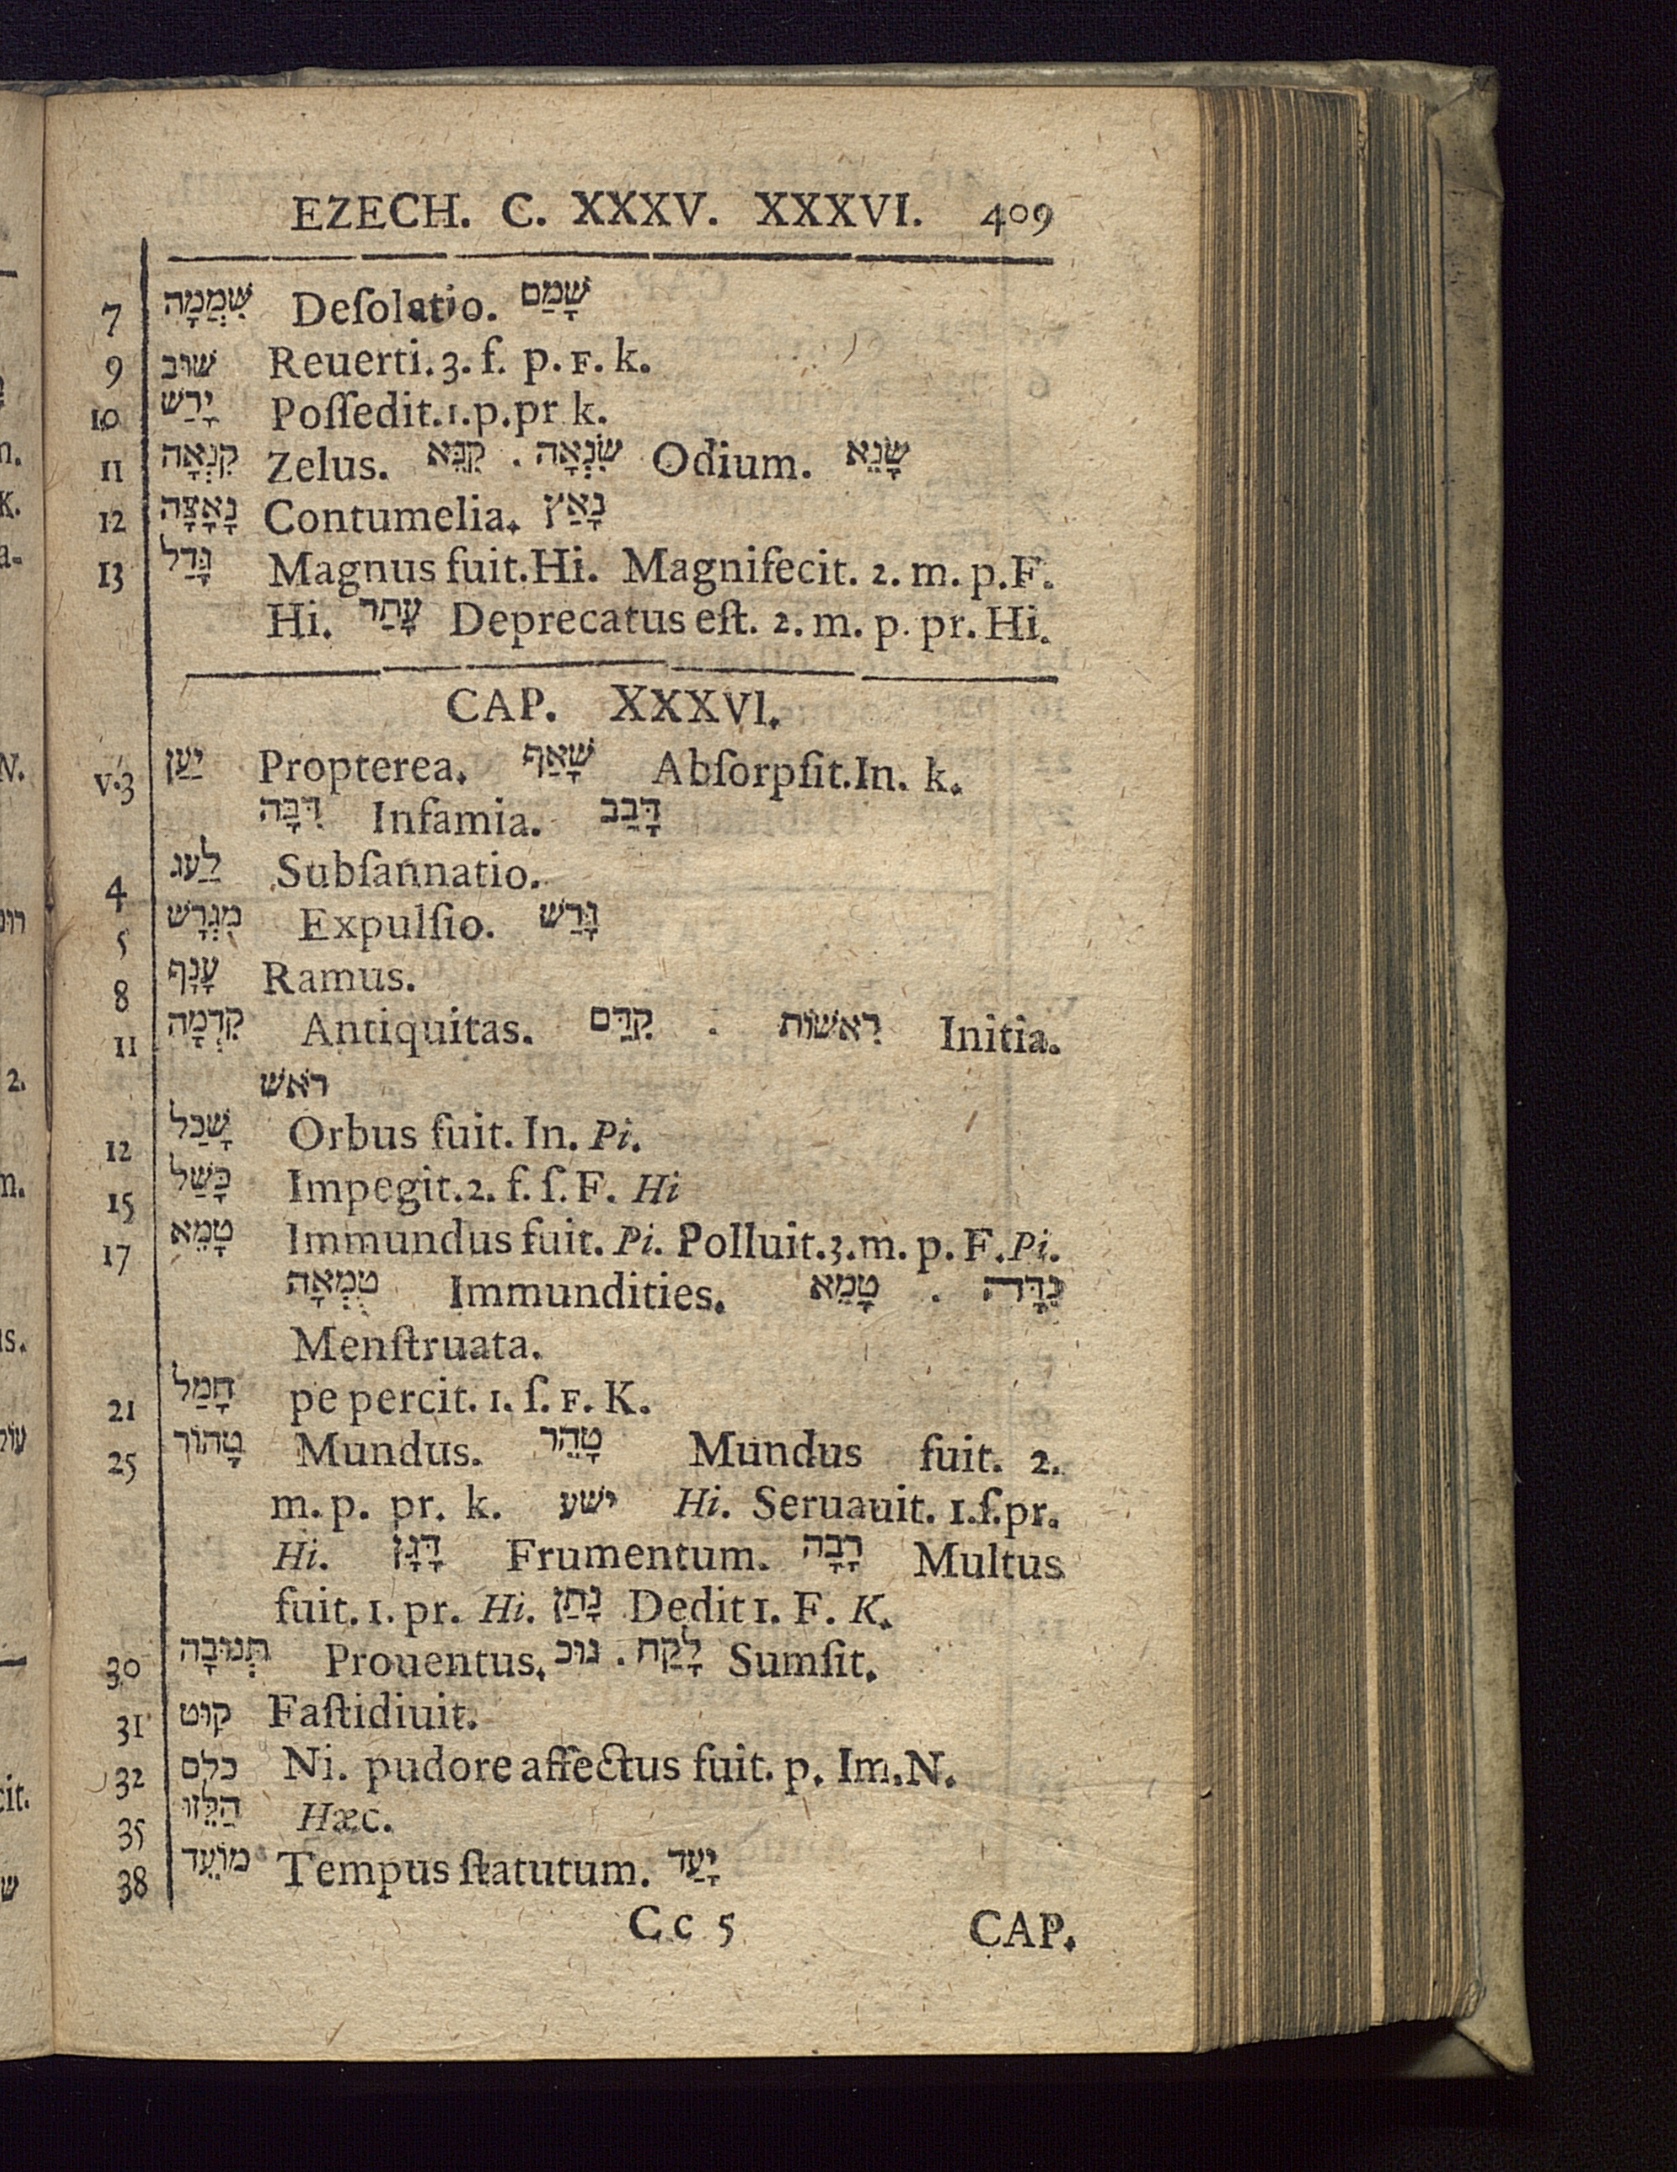 EZECH. C. XXXV. XXXVI. 409
7 שִׁמֲמָה Deſolatio. שָׁמַם
9 שׁוּב Reuerti. 3. f. p. F. k.
10 יָרַשׁ Poſſedit. 1. p. pr k.
11 קִנְאָה Zelus. קִנֵּא . שִׂנְאָה Odium. שָׂנֵא
12 נָאָצָה Contumelia. נָאַץ
13 גָּדַל Magnus fuit. Hi. Magnifecit. 2. m. p. F.
Hi. עָתַר Deprecatus eſt. 2. m. p. pr. Hi.
CAP. XXXVI.
v. 3 יַעַן Propterea. שָׁאַף Abſorpſit. In. k.
דִּבָּה Infamia. דָּבַב
4 לַעג Subſannatio.
5 מִגְרָשׁ Expulſio. גָּרַשׁ
8 עָנָף Ramus.
11 קִדְמָה Antiquitas. קִדֵּם . רִאשׁוֹת Initia.
ראֹשׁ
12 שָׁכַל Orbus fuit. In. Pi.
15 כָּשַׁל Impegit. 2. f. ſ. F. Hi
17 טָמֵא Immundus fuit. Pi. Polluit. 3. m. p. F. Pi.
טֻמְאָה Immundities. טָמֵא . נִדָּה
Menſtruata.
21 חָמַל pe percit. 1. ſ. F. K.
25 טָהוֹר Mundus. טָהֵר Mundus fuit. 2.
m. p. pr. k. ישׁע Hi. Seruauit. 1. ſ. pr.
Hi. דָּגָן Frumentum. רָבָה Multus
fuit. 1. pr. Hi. נָתַן Dedit 1. F. K.
30 תְּנוּבָה Prouentus. נוּב . לָקַח Sumſit.
31 קוּט Faſtidiuit.
32 כלם Ni. pudore affectus fuit. p. Im. N.
35 הַלֵּזוּ Hæc.
38 מוֹעֵד Tempus ſtatutum. יָעַד
Cc 5 CAP.